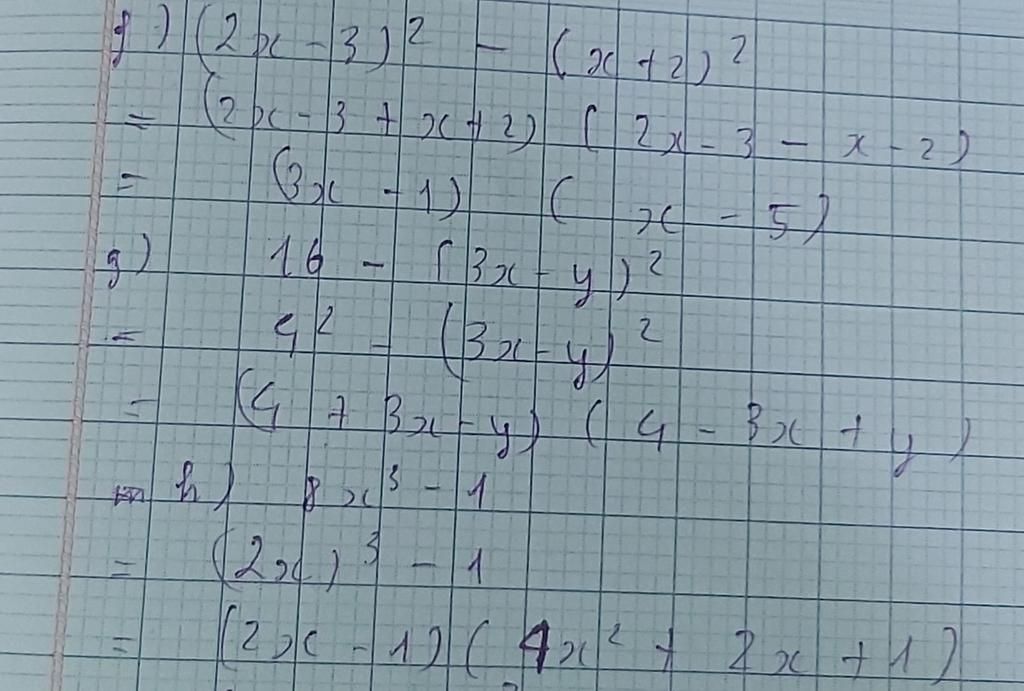 f) (2x - 3)² - (x + 2)²
= (2x - 3 + x + 2) (2x - 3 - x - 2)
= (3x - 1) (x - 5)
g) 16 - (3x - y)²
= 4² - (3x - y)²
= (4 + 3x - y) (4 - 3x + y)
h) 8x³ - 1
= (2x)³ - 1
= (2x - 1) (4x² + 2x + 1)